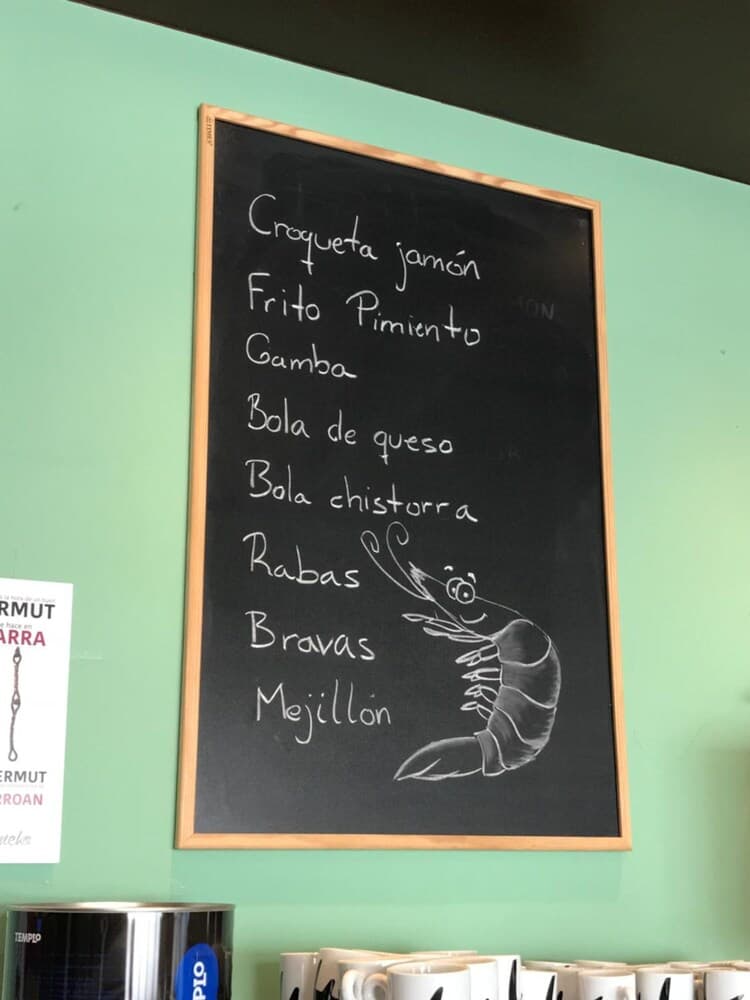 Croqueta jamón
Frito Pimiento
Gamba
Bola de queso
Bola chistorra
Rabas
Bravas
Mejillón
RMUT
ARRA
ERMUT
RROAN
TEMPLO